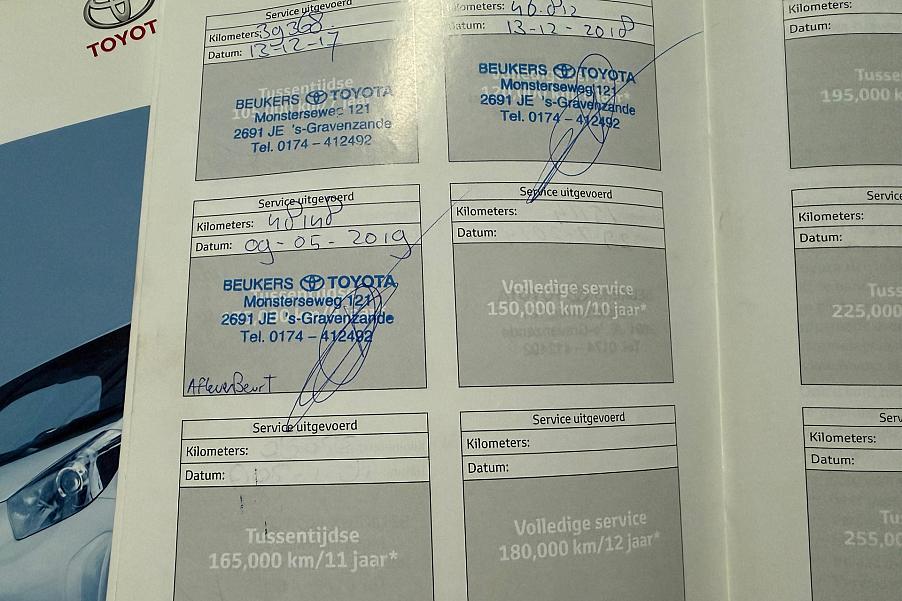 TOYOT
Service uitgevoerd
Kilometers: 39368
Datum: 12-12-17
Tussentijdse
BEUKERS TOYOTA
Monsterseweg 121
2691 JE 's-Gravenzande
Tel. 0174 - 412492
Kilometers: 46.812
Datum: 13-12-2018
BEUKERS TOYOTA
Monsterseweg 121
2691 JE 's-Gravenzande
Tel. 0174 - 412492
Kilometers:
Datum:
Tusse
195,000 k
Service uitgevoerd
Kilometers: 48148
Datum: 09-05-2019
BEUKERS TOYOTA
Monsterseweg 121
2691 JE 's-Gravenzande
Tel. 0174 - 412492
AfleverBeurt
Service uitgevoerd
Kilometers:
Datum:
Volledige service
150,000 km/10 jaar*
Service
Kilometers:
Datum:
Tuss
225,000
Service uitgevoerd
Kilometers:
Datum:
Tussentijdse
165,000 km/11 jaar*
Service uitgevoerd
Kilometers:
Datum:
Volledige service
180,000 km/12 jaar*
Serv
Kilometers:
Datum:
Tu
255,0